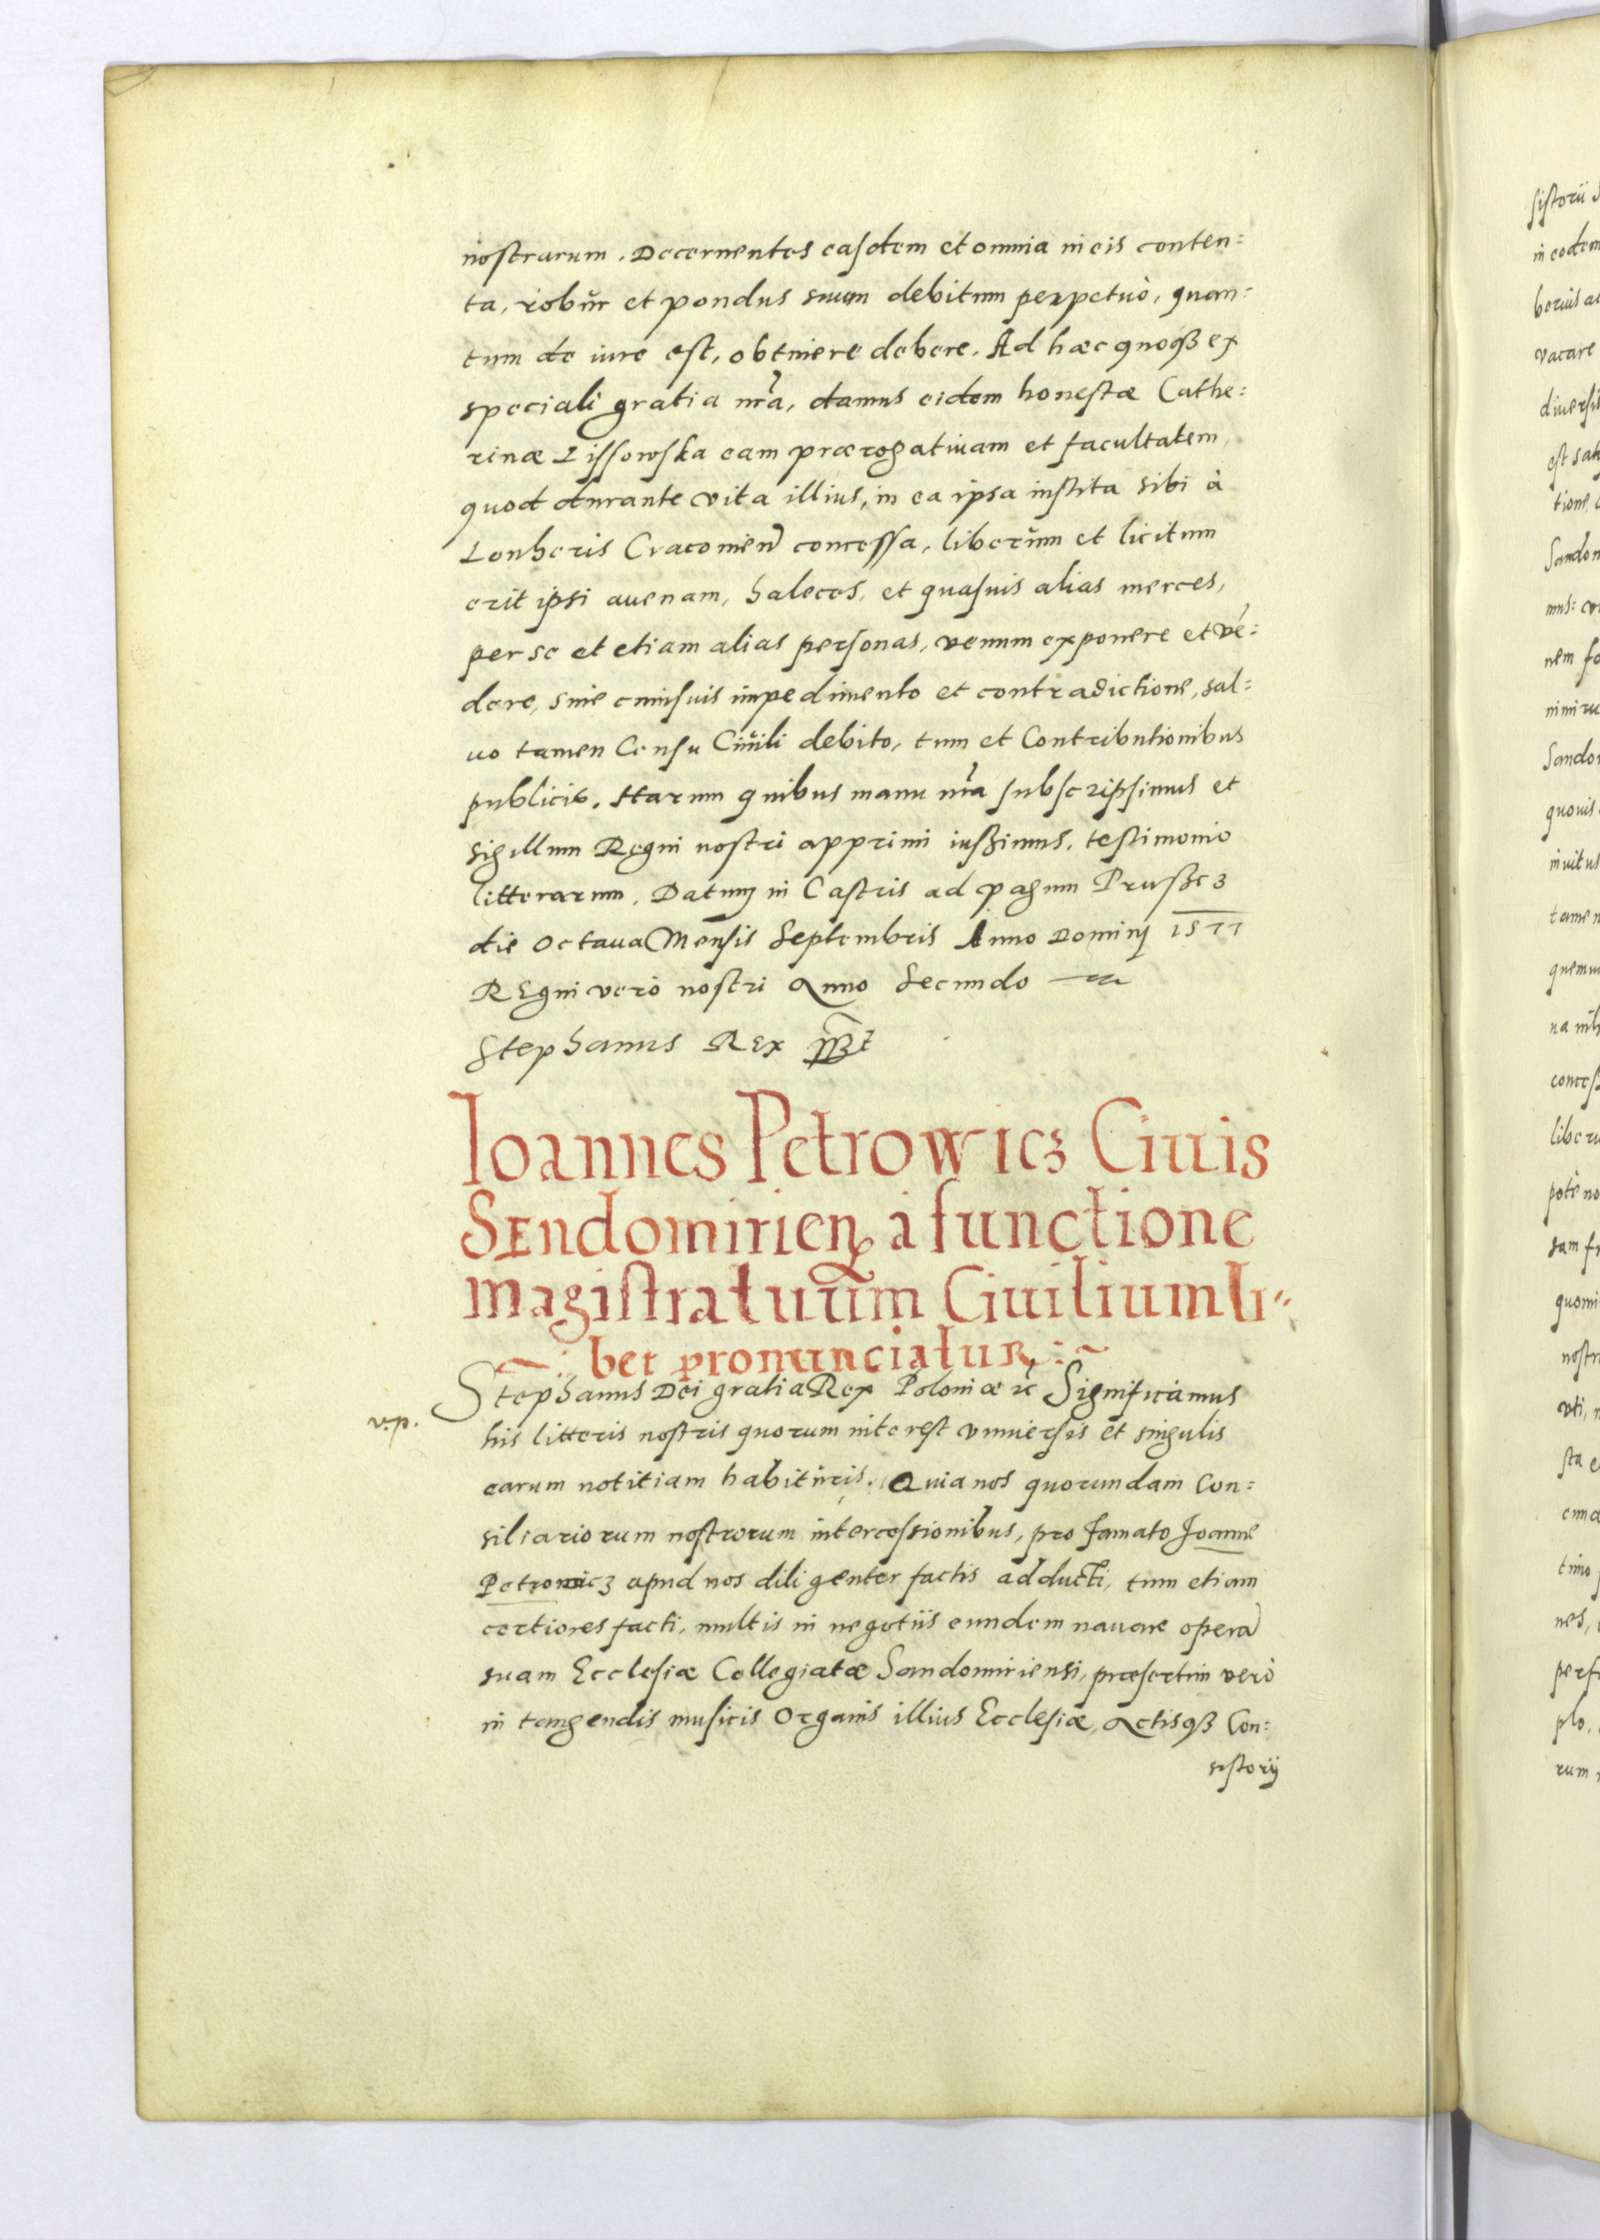 nostrarum. Decernentes easdem et omnia in eis conten:
ta, robur et pondus suum debitum perpetuò, quan:
tum de iure est, obtinere debere. Ad hæc quoqȝ ex
speciali gratia nr̃a, damus eidem honestæ Cathe:
rinæ Lissowska eam prærogatiuam et facultatem,
quod durante vita illius, in ea ipsa instita sibi à
Lonheris Cracouien̄ concessa, liberum et licitum
erit ipsi auenam, haleces, et quasuis alias merces,
per se et etiam alias personas, venum exponere et vē:
dere, sine cuiusuis impedimento et contradictione, sal:
uo tamen Censu Ciuili debito, tum et Contributionibus
publicis. Harum quibus manu nr̃a subscripsimus et
sigillum Regni nostri apprimi iussimus, testimonio
litterarum. Datum in Castris ad pagum Prusscz
die Octaua Mensis Septembris Anno Dominj 1577
REgni verò nostri Anno Secundo
Stephanus REx
Ioannes Petrowicz Ciuis
SEndomirien̄ à functione
Magistratuum Ciuilium li⸗
ber pronunciatur
Stephanus Dei gratia Rex Poloniæ ꝛc̃ Significamus
v.p.
his litteris nostris quorum interest vniuersis et singulis
earum notitiam habituris. Quia nos quorundam Con:
siliariorum nostrorum intercessionibus, pro famato Joanne
Petrowicz apud nos diligenter factis adducti, tum etiam
certiores facti, multis in negotiis eundem nauare operā
suam Ecclesiæ Collegiatæ Sandomiriensi, præsertim verò
in tangendis musicis Organis illius Ecclesiæ, Actisqȝ Con:
sistorij